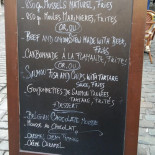 850g Moules Nature, Frites
850g Moules Marinières, Frites
OR/OU
Beef and onion stew made with beer,
Fries
Carbonnade à la Flamande, Frites
OR/OU
Salmon Fish and Chips with Tartare
Sauce, Fries
Goujonnettes de Saumon, Tartare,
Frites
+ Dessert
Belgian Chocolate Mousse
Mousse au Chocolat
Crème Caramel